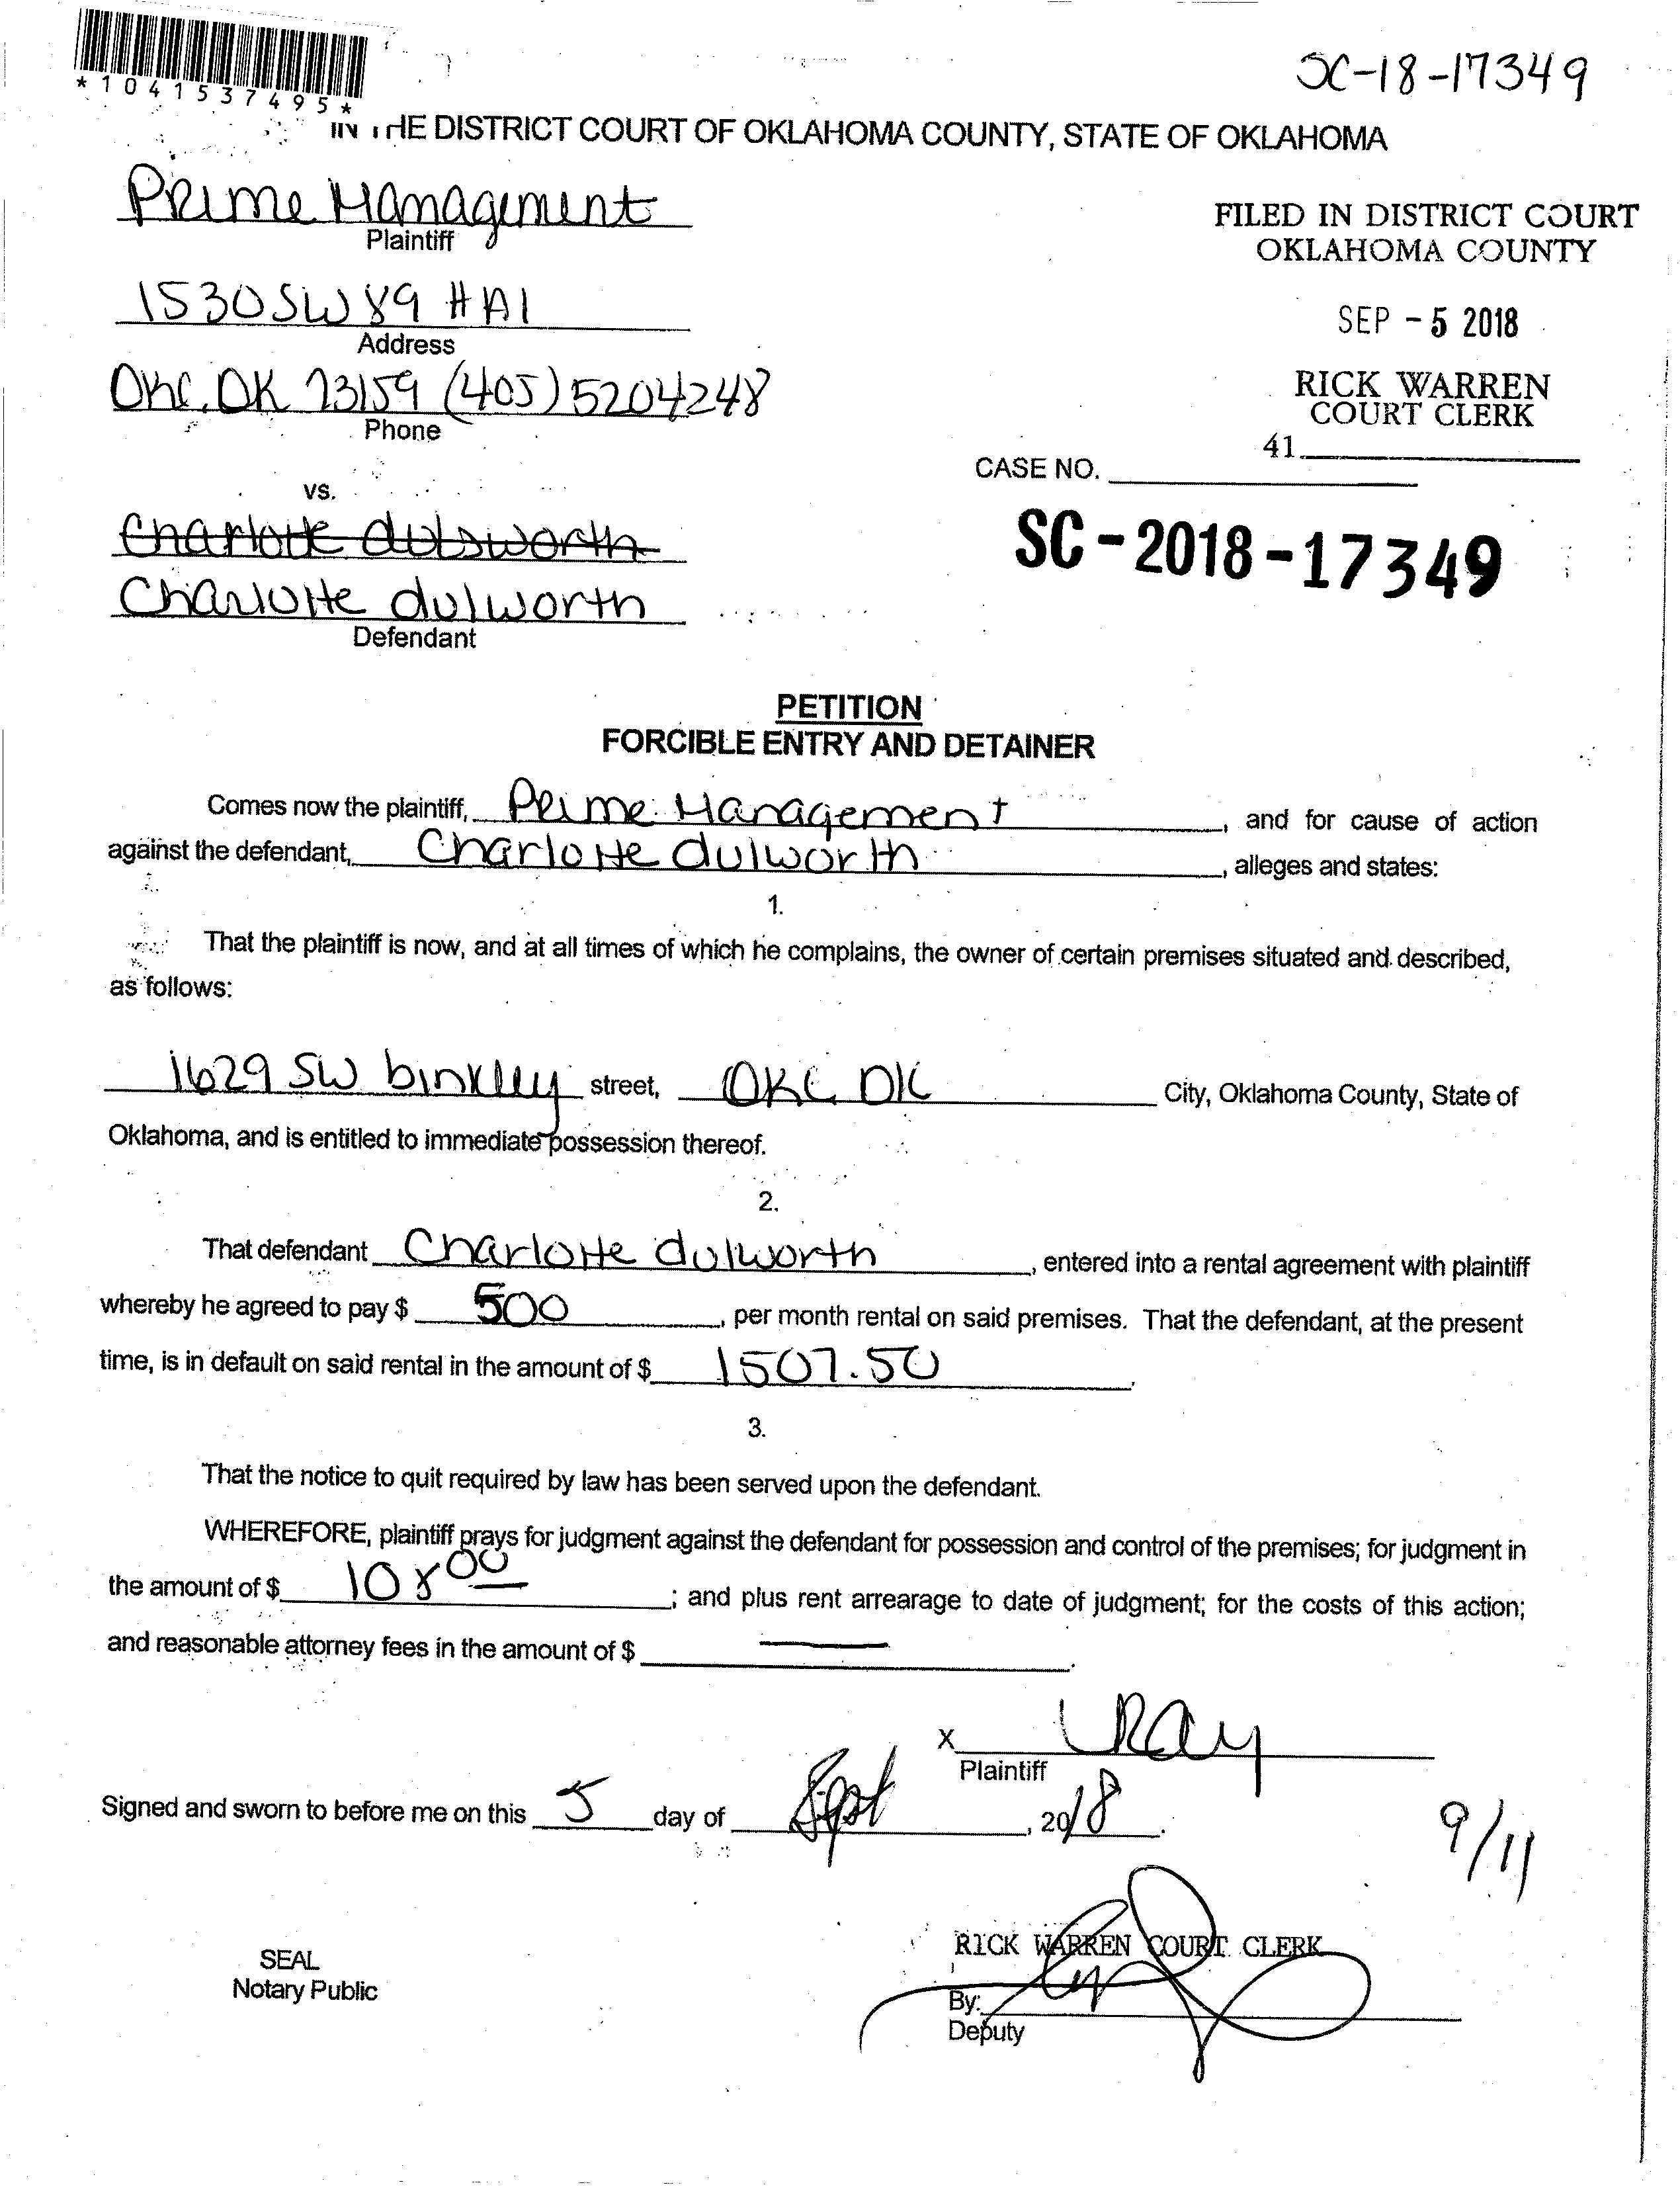 *1041537495*
SC-18-17349
IN THE DISTRICT COURT OF OKLAHOMA COUNTY, STATE OF OKLAHOMA
Prime Management
Plaintiff
1530 SW 89 #A1
Address
OKC, OK 73159 (405) 5204248
Phone
FILED IN DISTRICT COURT
OKLAHOMA COUNTY
SEP - 5 2018
RICK WARREN
COURT CLERK
41
CASE NO.
vs.
Charlotte dulsworth
Charlotte dulworth
Defendant
SC-2018-17349
PETITION
FORCIBLE ENTRY AND DETAINER
Comes now the plaintiff, Prime Management, and for cause of action
against the defendant, Charlotte dulworth, alleges and states:
1.
That the plaintiff is now, and at all times of which he complains, the owner of certain premises situated and described,
as follows:
1629 SW binkley street, OKC OK City, Oklahoma County, State of
Oklahoma, and is entitled to immediate possession thereof.
2.
That defendant Charlotte dulworth, entered into a rental agreement with plaintiff
whereby he agreed to pay $ 500, per month rental on said premises. That the defendant, at the present
time, is in default on said rental in the amount of $ 1507.50.
3.
That the notice to quit required by law has been served upon the defendant.
WHEREFORE, plaintiff prays for judgment against the defendant for possession and control of the premises; for judgment in
the amount of $ 108 00; and plus rent arrearage to date of judgment; for the costs of this action;
and reasonable attorney fees in the amount of $ —.
X LRay
Plaintiff
Signed and sworn to before me on this 5 day of Sept, 2018.
9/11
SEAL
Notary Public
RICK WARREN COURT CLERK
By:
Deputy